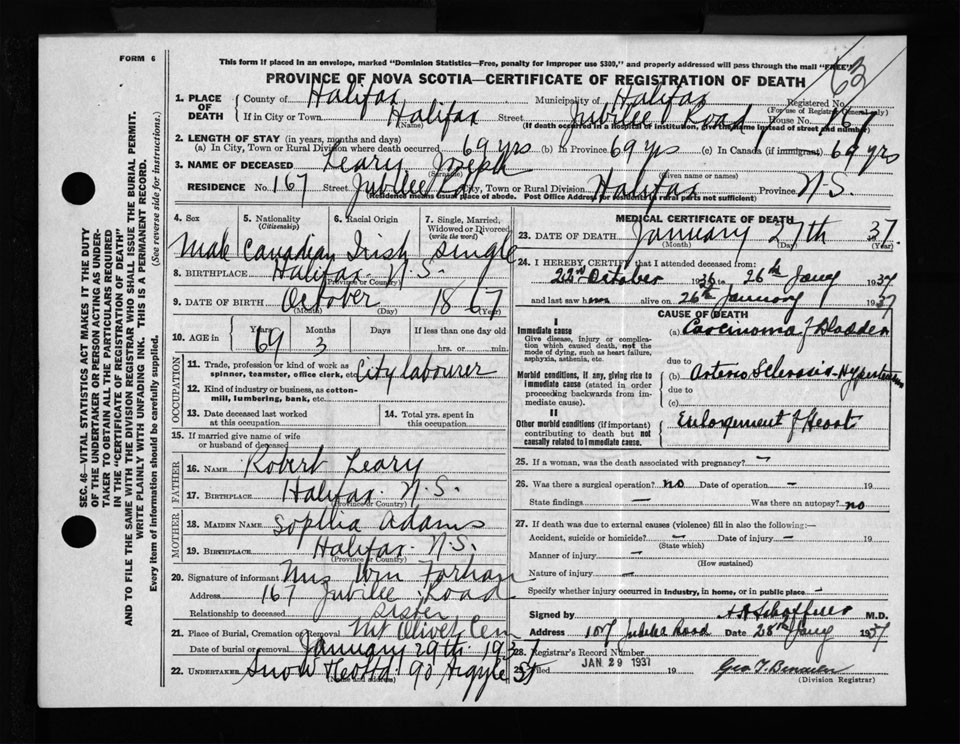 FORM 6
This form if placed in an envelope, marked "Dominion Statistics—Free, penalty for improper use $300," and properly addressed will pass through the mail "FREE"
PROVINCE OF NOVA SCOTIA—CERTIFICATE OF REGISTRATION OF DEATH
63
SEC. 46—VITAL STATISTICS ACT MAKES IT THE DUTY
OF THE UNDERTAKER OR PERSON ACTING AS UNDER-
TAKER TO OBTAIN ALL THE PARTICULARS REQUIRED
IN THE "CERTIFICATE OF REGISTRATION OF DEATH"
AND TO FILE THE SAME WITH THE DIVISION REGISTRAR WHO SHALL ISSUE THE BURIAL PERMIT.
WRITE PLAINLY WITH UNFADING INK. THIS IS A PERMANENT RECORD.
Every item of information should be carefully supplied. (See reverse side for instructions.)
1. PLACE OF DEATH County of Halifax Municipality of Halifax Registered No.
(For use of Registrar General only)
If in City or Town Halifax Street Jubilee Road House No. 167
(Name) (If death occurred in a hospital or institution, give the name instead of street and number)
2. LENGTH OF STAY (in years, months and days)
(a) In City, Town or Rural Division where death occurred 69 yrs (b) In Province 69 yrs (c) In Canada (if immigrant) 69 yrs
3. NAME OF DECEASED Leary Joseph
(Surname) (Given name or names)
RESIDENCE No. 167 Street Jubilee Road City, Town or Rural Division Halifax Province N-S.
(Residence means Usual place of abode. Post Office Address for residents in rural parts not sufficient)
4. Sex 5. Nationality (Citizenship) 6. Racial Origin 7. Single, Married, Widowed or Divorced (write the word)
Male Canadian Irish Single
8. BIRTHPLACE Halifax. N.S.
(Province or Country)
9. DATE OF BIRTH October 1867
(Month) (Day) (Year)
10. AGE in Years 69 Months 3 Days If less than one day old hrs. or min.
OCCUPATION
11. Trade, profession or kind of work as spinner, teamster, office clerk, etc. City labourer
12. Kind of industry or business, as cotton-mill, lumbering, bank, etc.
13. Date deceased last worked at this occupation 14. Total yrs. spent in this occupation
15. If married give name of wife or husband of deceased
FATHER
16. NAME Robert Leary
17. BIRTHPLACE Halifax. N.S.
(Province or Country)
MOTHER
18. MAIDEN NAME Sophia Adams
19. BIRTHPLACE Halifax. N.S.
(Province or Country)
20. Signature of informant Mrs Wm Farhan
Address 167 Jubilee Road
Relationship to deceased Sister
21. Place of Burial, Cremation or Removal Mt Olivet Cem
Date of burial or removal January 29th. 1937
22. UNDERTAKER Snow 90 Argyle St
(Name and address)
MEDICAL CERTIFICATE OF DEATH
23. DATE OF DEATH January 27th 1937.
(Month) (Day) (Year)
24. I HEREBY CERTIFY that I attended deceased from:
22nd October 1936 to 26th Jany 1937
and last saw him alive on 26th January 1937
CAUSE OF DEATH
I
Immediate cause (a) Carcinoma of Bladder
Give disease, injury or complication which caused death, not the mode of dying, such as heart failure, asphyxia, asthenia, etc.
due to
Morbid conditions, if any, giving rise to immediate cause (stated in order proceeding backwards from immediate cause). (b) Arterio Sclerosis-Hypertension
due to
(c)
II
Other morbid conditions (if important) contributing to death but not causally related to immediate cause. Enlargement of Heart
25. If a woman, was the death associated with pregnancy? –
26. Was there a surgical operation? no Date of operation – 19
State findings – Was there an autopsy? no
27. If death was due to external causes (violence) fill in also the following:—
Accident, suicide or homicide? – Date of injury – 19
(State which)
Manner of injury –
(How sustained)
Nature of injury –
Specify whether injury occurred in Industry, in home, or in public place –
Signed by H A Schaffner M.D.
Address 107 Jubilee Road Date 28th Jany 1937
28. Registrar's Record Number
Filed JAN 29 1937 19 Geo T.
(Division Registrar)